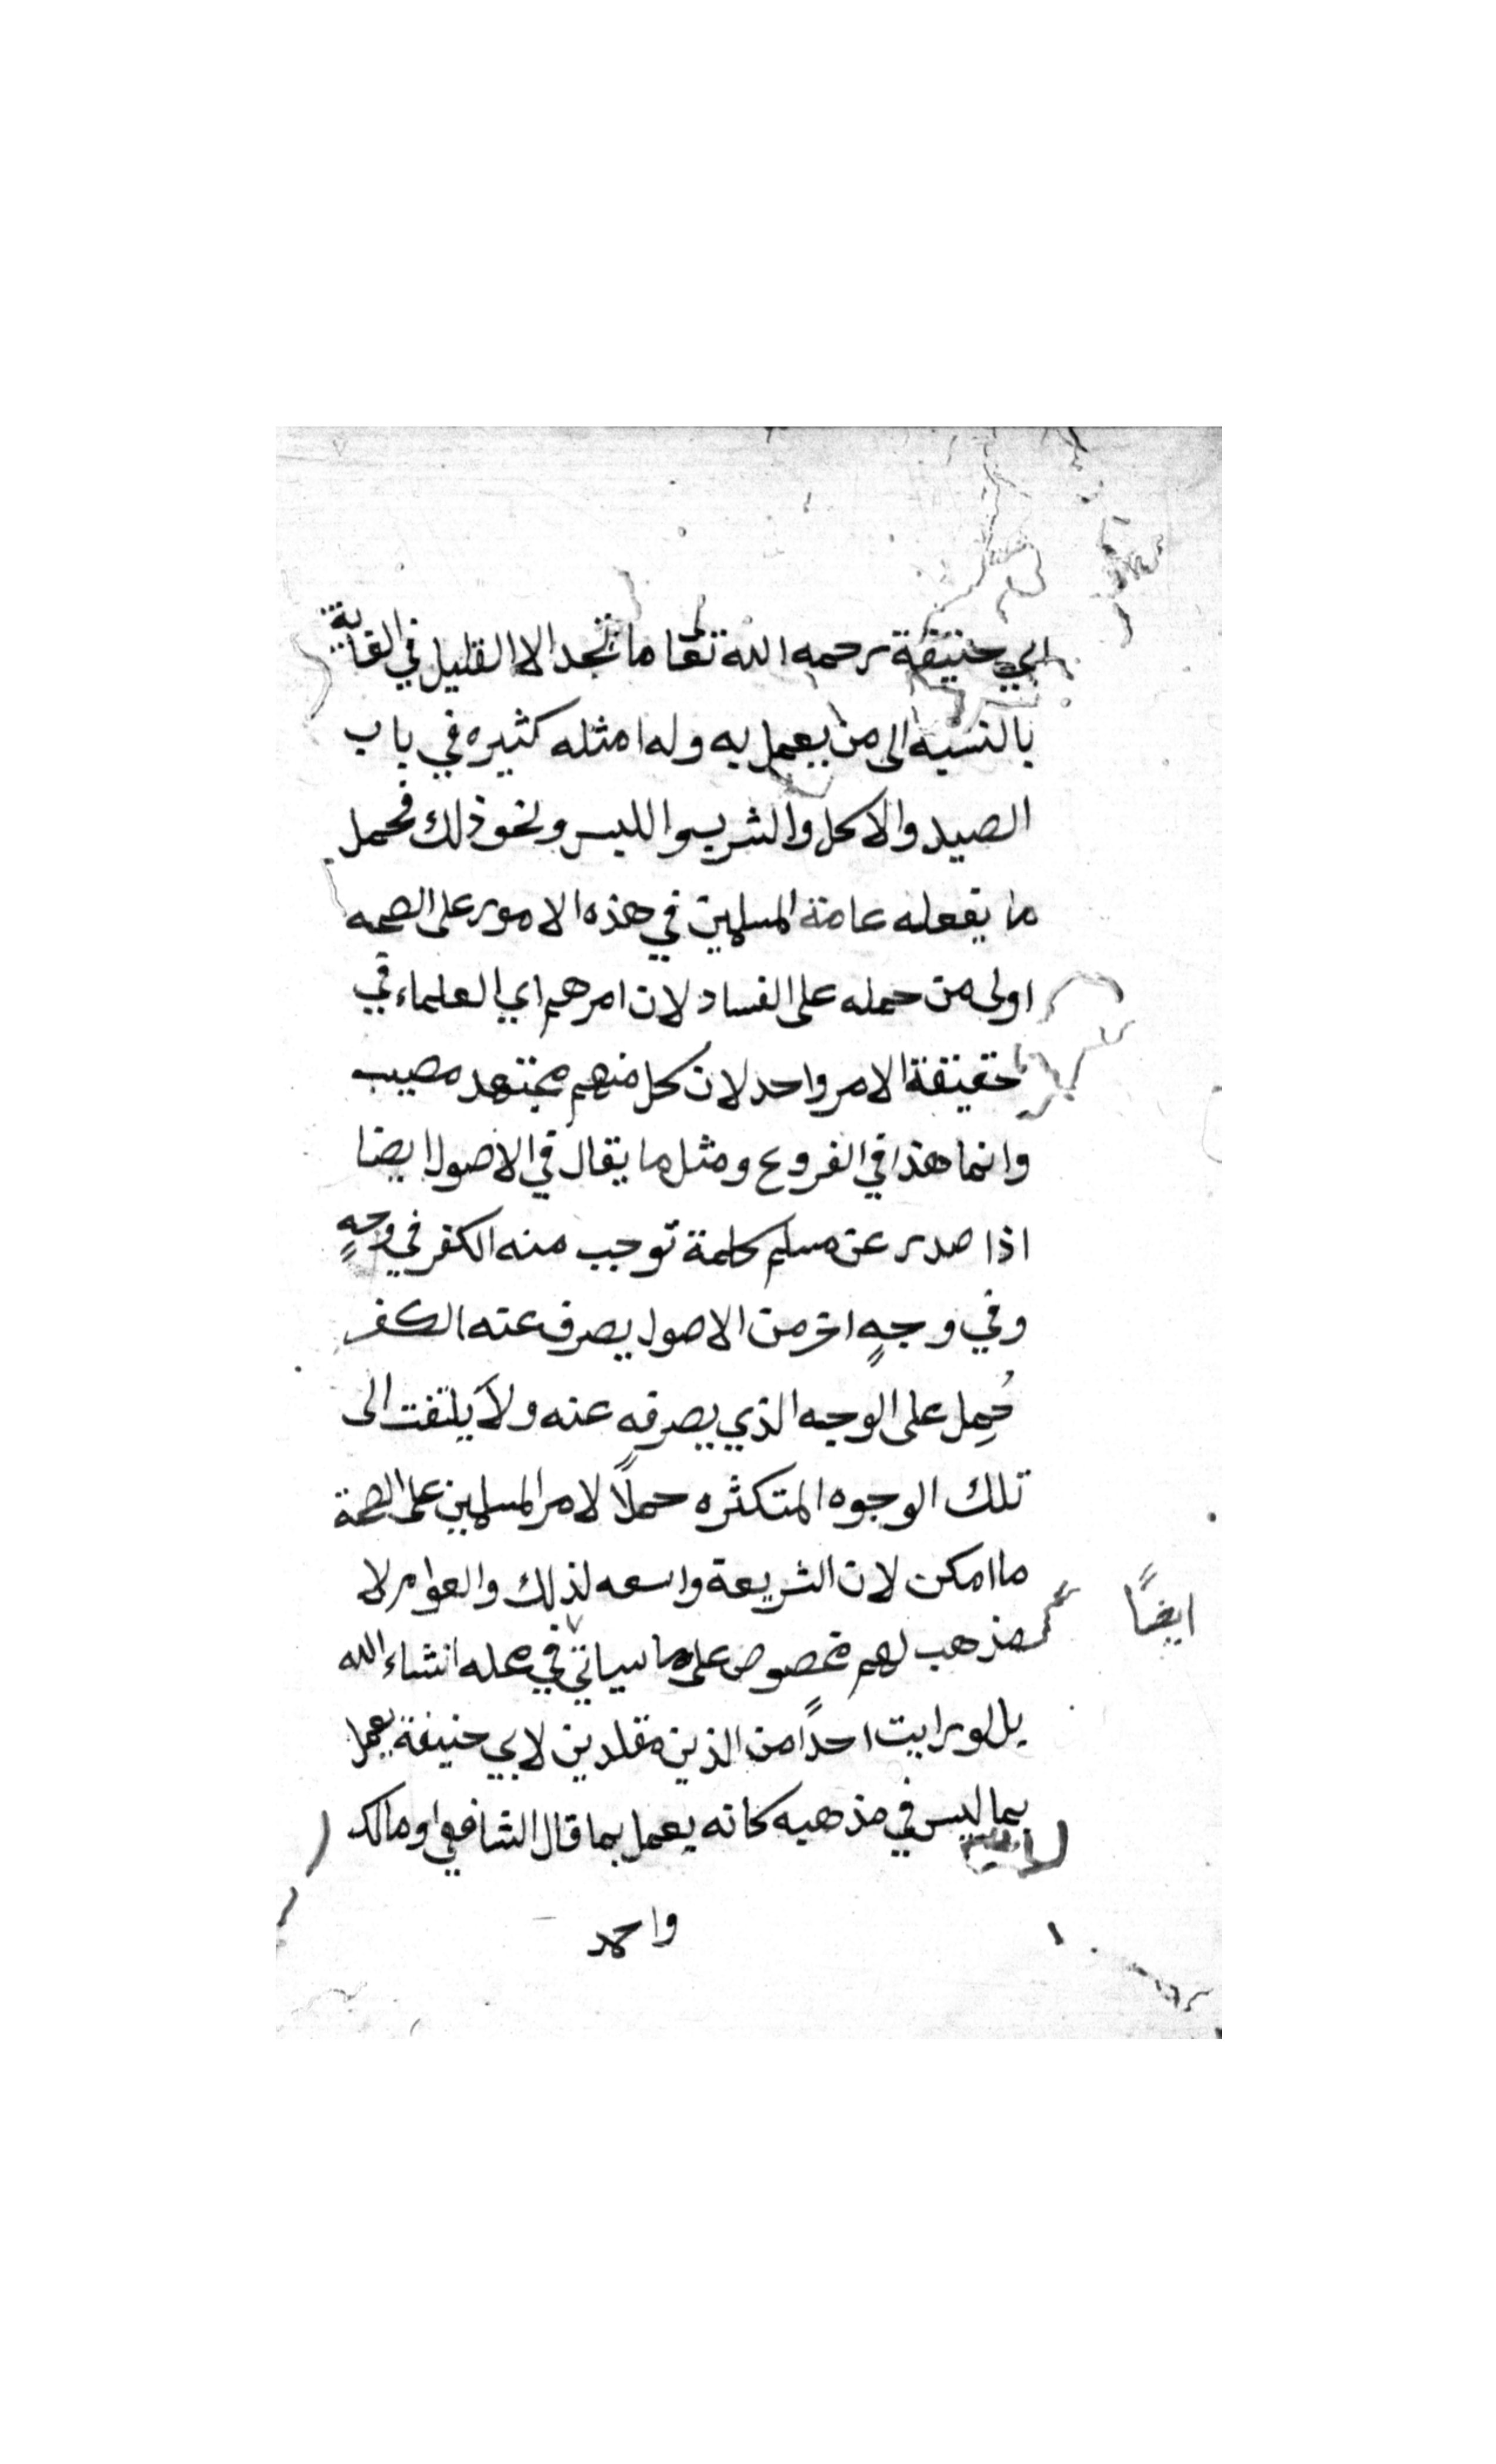 ابي حنيفة رحمه الله تعا ما تجد الا القليل في الغاية
بالنسبه الى من يعمل به وله امثله كثيره في باب
الصيد والاكل والشرب واللبس ونحو ذلك فحمل
ما يفعله عامة المسلمين في هذه الامور على الصحه
اولى من حمله على الفساد لان امرهم اي العلماء في
حقيقة الامر واحد لان كل منهم مجتهد مصيب
وانما هذا في الفروع ومثل ما يقال في الاصول ايضا
اذا صدر عن مسلم كلمة توجب منه الكفر في وجهٍ
وفي وجهٍ اخر من الاصول يصرف عنه الكفر
حُمِل على الوجه الذي يصرفه عنه ولا يلتفت الى
تلك الوجوه المتكثره حملاً لامر المسلمين على الصحة
ما امكن لان الشريعة واسعه لذلك والعوام لا
مذهب لهم مخصوص على ما سياتي في محله انشاء الله
ايضاً
بل لو رايت احدًا من الذين مقلدين لابي حنيفة يعمل
بما ليس في مذهبه كانه يعمل بما قال الشافعي او مالك
واحمد